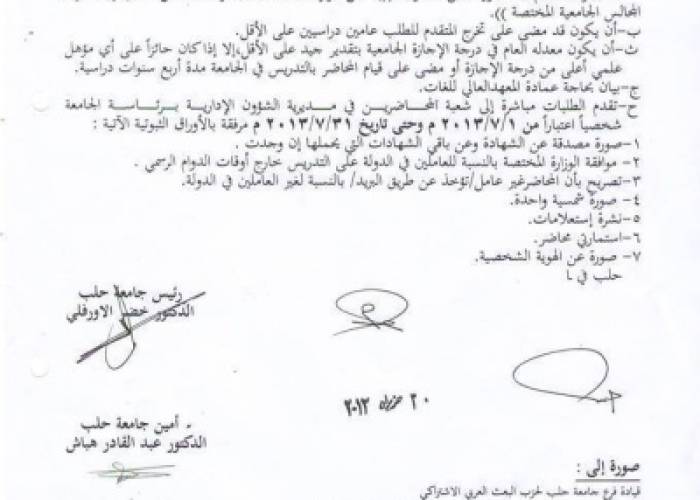 المجالس الجامعية المختصة )).
ب-أن يكون قد مضى على تخرج المتقدم للطلب عامين دراسيين على الأقل.
ث-أن يكون معدله العام في درجة الإجازة الجامعية بتقدير جيد على الأقل،إلا إذا كان حائزاً على أي مؤهل
علمي أعلى من درجة الإجازة أو مضى على قيام المحاضر بالتدريس في الجامعة مدة أربع سنوات دراسية.
ج-بيان بحاجة عمادة المعهدالعالي للغات.
ح-تقدم الطلبات مباشرة إلى شعبة المحاضرين في مديرية الشؤون الإدارية برئاسة الجامعة
شخصياً اعتباراً من ٢٠١٣/٧/١ م وحتى تاريخ ٢٠١٣/٧/٣١ م مرفقة بالأوراق الثبوتية الآتية :
١-صورة مصدقة عن الشهادة وعن باقي الشهادات التي يحملها إن وجدت .
٢- موافقة الوزارة المختصة بالنسبة للعاملين في الدولة على التدريس خارج أوقات الدوام الرسمي .
٣-تصريح بأن المحاضرغير عامل/تؤخذ عن طريق البريد/ بالنسبة لغير العاملين في الدولة.
٤- صورة شمسية واحدة.
٥- نشرة إستعلامات.
٦-استمارتي محاضر.
٧- صورة عن الهوية الشخصية.
حلب في
رئيس جامعة حلب
الدكتور خضر الاورفلي
٢٠ حزيران ٢٠١٣
أمين جامعة حلب
الدكتور عبد القادر هباش
صورة إلى :
قيادة فرع جامعة حلب لحزب البعث العربي الاشتراكي